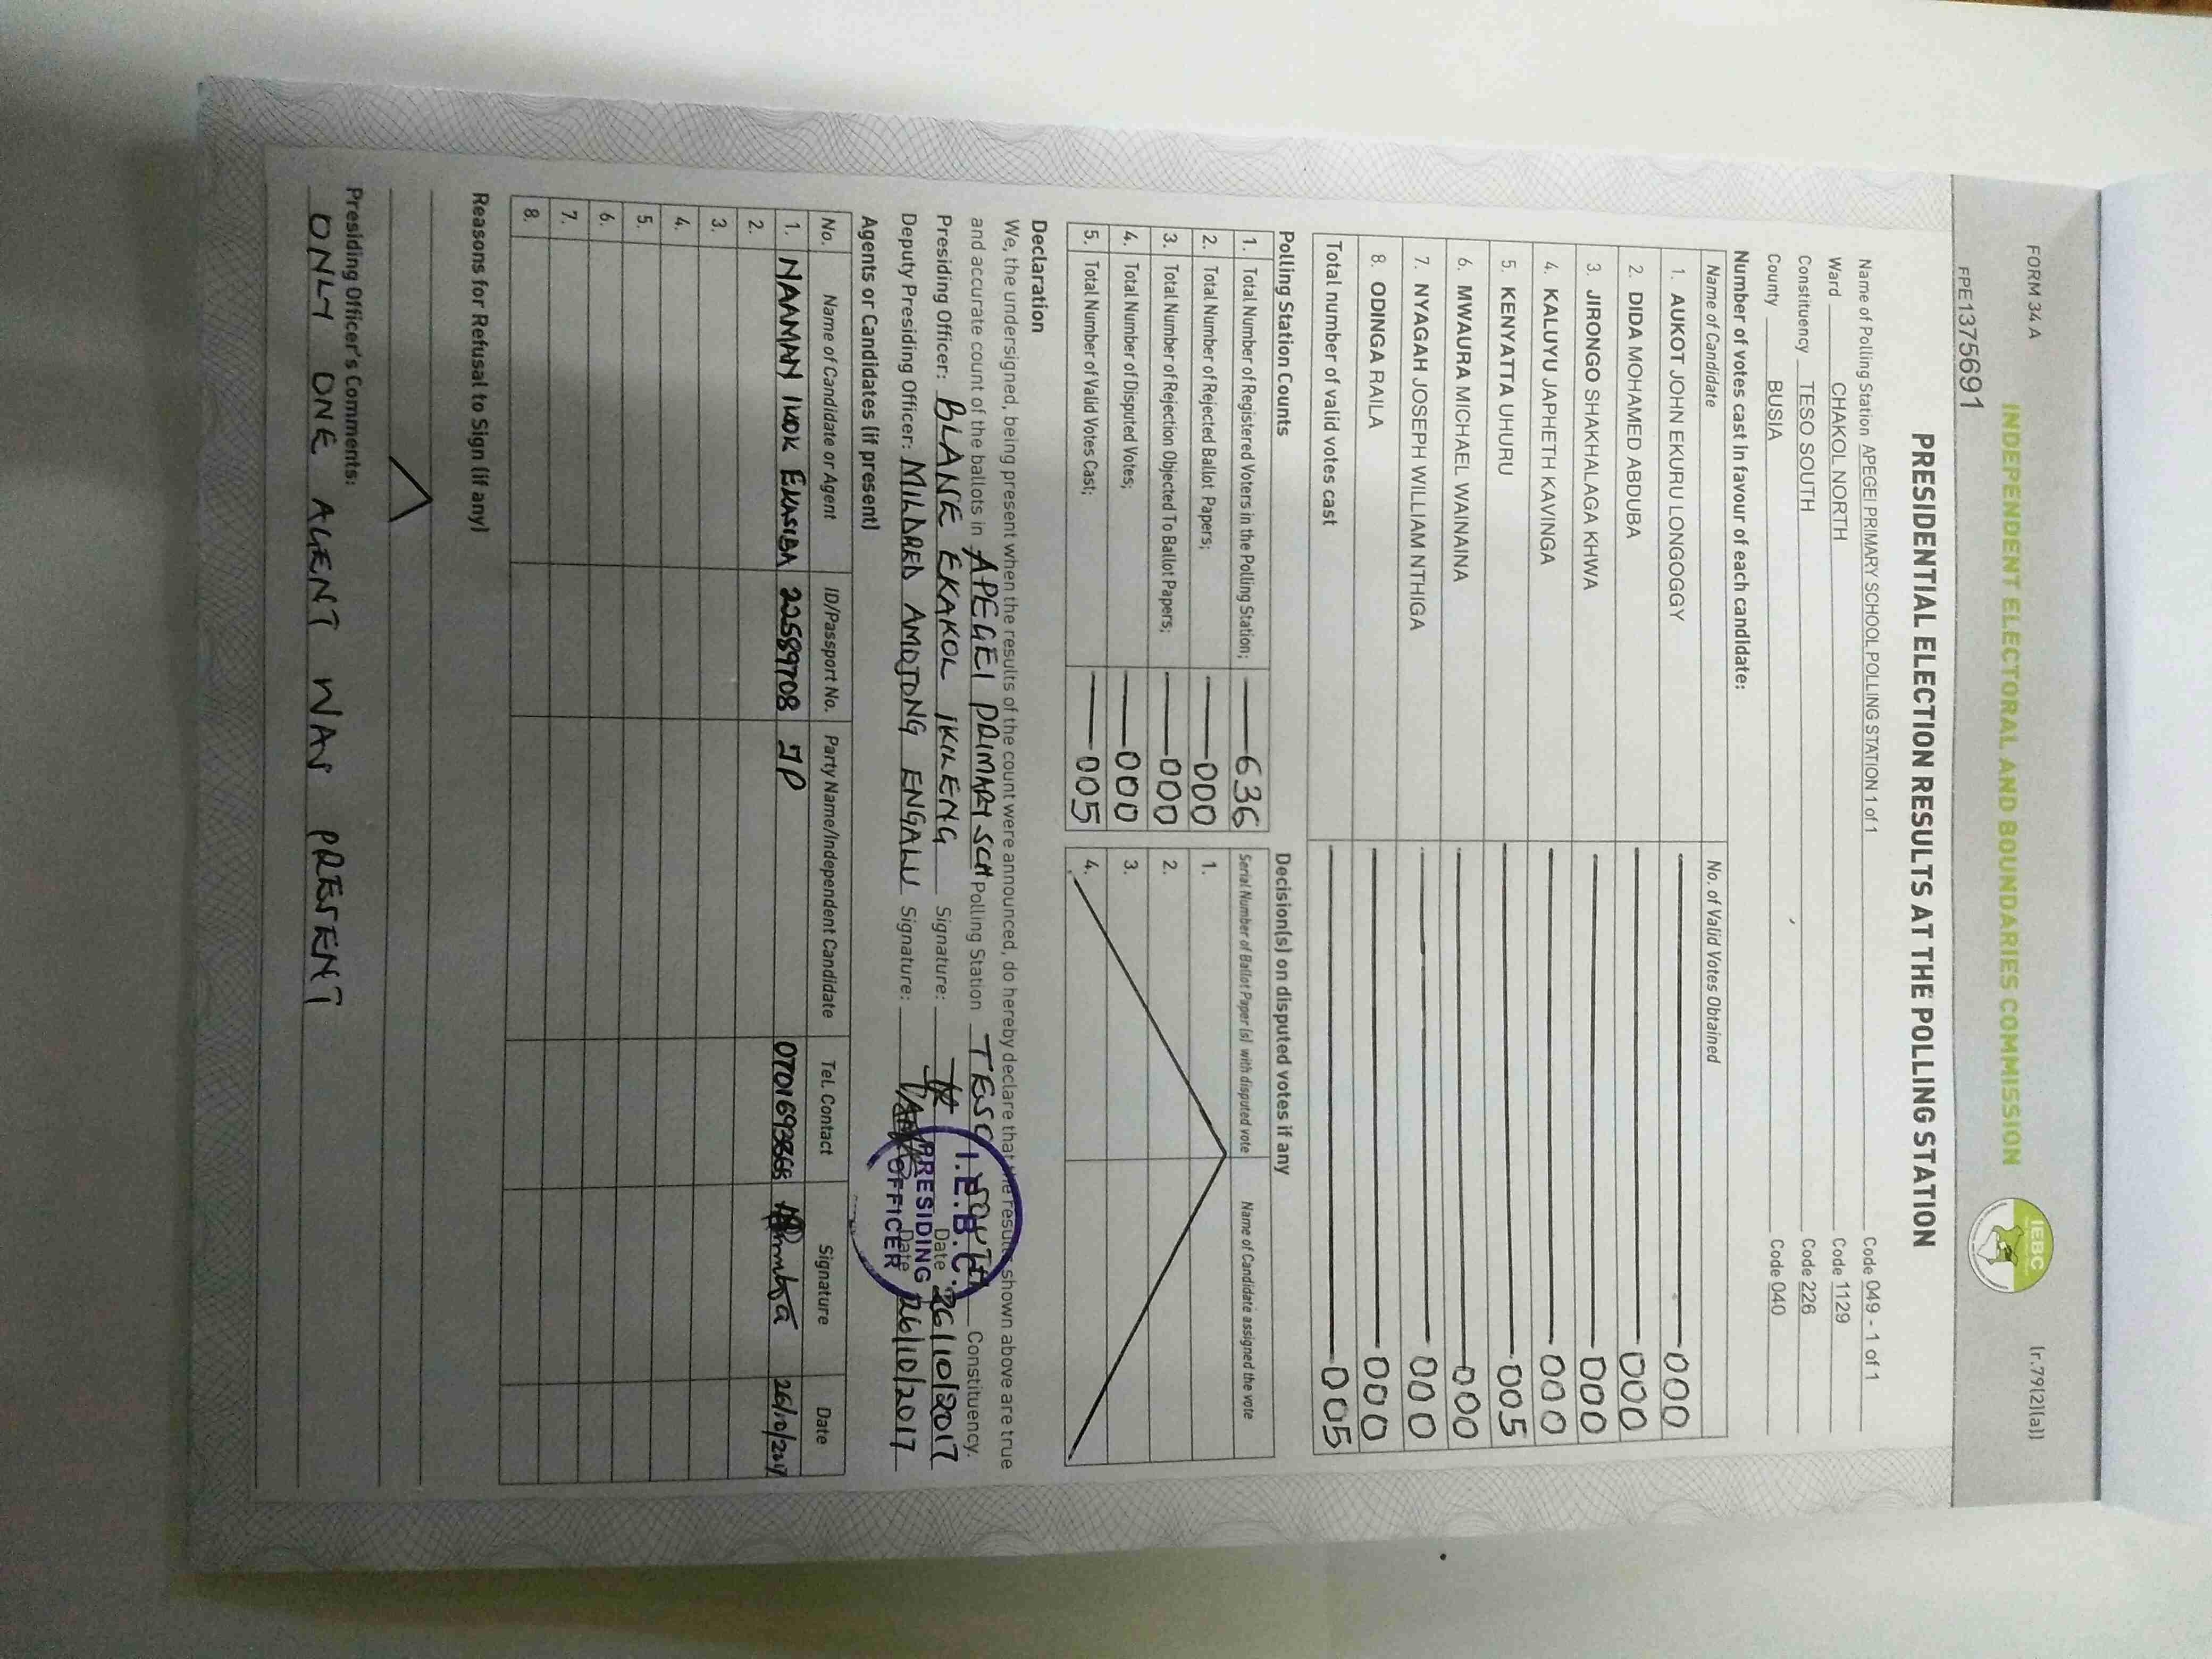 FORM 34 A
INDEPENDENT ELECTORAL AND BOUNDARIES COMMISSION
IEBC
(r.79(2)(a))
FPE1375691
PRESIDENTIAL ELECTION RESULTS AT THE POLLING STATION
Name of Polling Station APEGEI PRIMARY SCHOOL POLLING STATION 1 of 1 Code 049 - 1 of 1
Ward CHAKOL NORTH Code 1129
Constituency TESO SOUTH Code 226
County BUSIA Code 040
Number of votes cast in favour of each candidate:
Name of Candidate No. of Valid Votes Obtained
1. AUKOT JOHN EKURU LONGOGGY 000
2. DIDA MOHAMED ABDUBA 000
3. JIRONGO SHAKHALAGA KHWA 000
4. KALUYU JAPHETH KAVINGA 000
5. KENYATTA UHURU 005
6. MWAURA MICHAEL WAINAINA 000
7. NYAGAH JOSEPH WILLIAM NTHIGA 000
8. ODINGA RAILA 000
Total number of valid votes cast 005
Polling Station Counts Decision(s) on disputed votes if any
1. Total Number of Registered Voters in the Polling Station; 636 Serial Number of Ballot Paper (s) with disputed vote Name of Candidate assigned the vote
2. Total Number of Rejected Ballot Papers; 000 1.
3. Total Number of Rejection Objected To Ballot Papers; 000 2.
4. Total Number of Disputed Votes; 000 3.
5. Total Number of Valid Votes Cast; 005 4.
Declaration
We, the undersigned, being present when the results of the count were announced, do hereby declare that the results shown above are true
and accurate count of the ballots in APEGEI PRIMARY SCH Polling Station TESO SOUTH Constituency.
Presiding Officer: BLANE EKAKOL IKILENG Signature: Date 26/10/2017
Deputy Presiding Officer: MILDRED AMOJONG ENGALU Signature: Date 26/10/2017
I.E.B.C.
PRESIDING
OFFICER
Agents or Candidates (if present)
No. Name of Candidate or Agent ID/Passport No. Party Name/Independent Candidate Tel. Contact Signature Date
1. NAAMAN IKOK EKASIBA 22589708 JP 26/10/2017
2.
3.
4.
5.
6.
7.
8.
Reasons for Refusal to Sign (if any)
Presiding Officer's Comments:
ONLY ONE AGENT WAS PRESENT